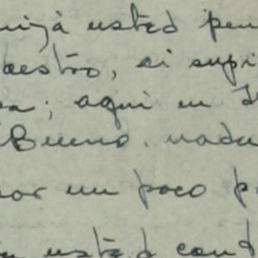 usted pen
aestro, si supi
a; aqui en
Bueno. nada
un poco p
usted cont